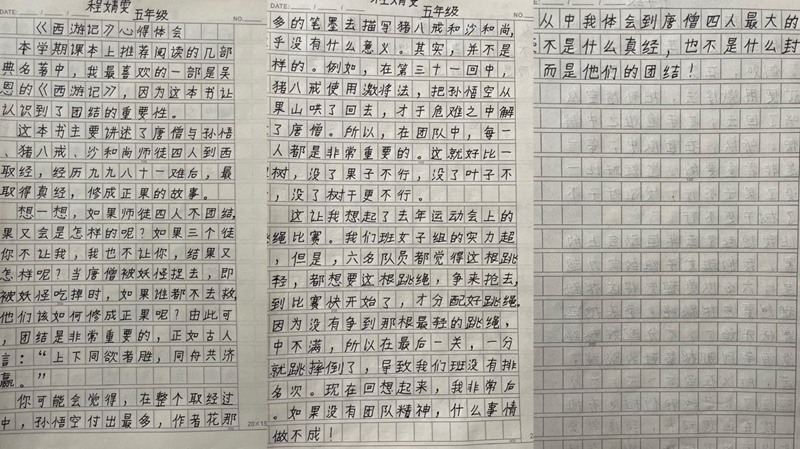 程婧雯
五年级
DATE: / /
NO.
《西游记》心得体会
本学期课本上推荐阅读的几部
典名著中，我最喜欢的一部是吴
恩的《西游记》，因为这本书让
认识到了团结的重要性。
这本书主要讲述了唐僧与孙悟
、猪八戒、沙和尚师徒四人到西
取经，经历九九八十一难后，最
取得真经，修成正果的故事。
想一想，如果师徒四人不团结，
果又会是怎样的呢？如果三个徒
你不让我，我也不让你，结果又
怎样呢？当唐僧被妖怪捉去，即
被妖怪吃掉时，如果谁都不去救，
他们该如何修成正果呢？由此可
，团结是非常重要的，正如古人
言：“上下同欲者胜，同舟共济
赢。”
你可能会觉得，在整个取经过
中，孙悟空付出最多，作者花那
DATE: / /
五年级
NO.
多的笔墨去描写猪八戒和沙和尚，
乎没有什么意义。其实，并不是
样的。例如，在第三十一回中，
猪八戒使用激将法，把孙悟空从
果山哄了回去，才于危难之中解
了唐僧。所以，在团队中，每一
人都是非常重要的。这就好比一
树，没了果子不行，没了叶子不
，没了树干更不行。
这让我想起了去年运动会上的
绳比赛。我们班女子组的实力超
，但是，六名队员都觉得这根跳
轻，都想要这根跳绳，争来抢去，
到比赛快开始了，才分配好跳绳。
因为没有争到那根最轻的跳绳，
中不满，所以在最后一关，一分
就跳摔倒了，导致我们班没有排
名次。现在回想起来，我非常后
。如果没有团队精神，什么事情
做不成！
从中我体会到唐僧四人最大的
不是什么真经，也不是什么封
而是他们的团结！